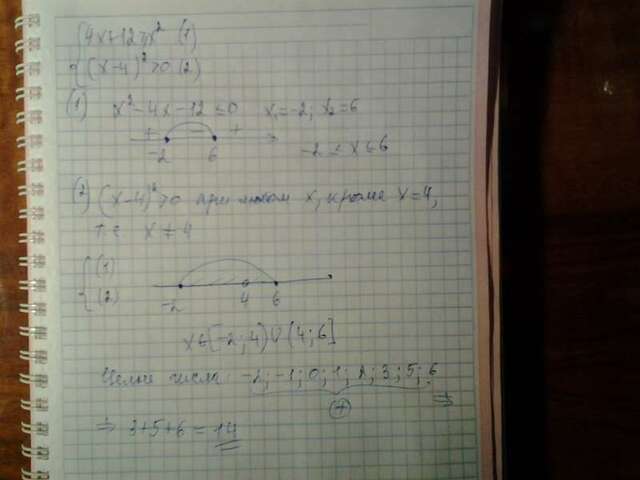 { 4x+12≥x² (1)
(x-4)²>0 (2)
(1) x²-4x-12≤0 x₁=-2; x₂=6
+ - +
-2 6 -2≤x≤6
(2) (x-4)²>0 при любом x, кроме x=4,
т.е. x≠4
{ (1)
(2)
-2 4 6
x∈[-2;4)∪(4;6]
Целые числа: -2;-1;0;1;2;3;5;6 ⇒
⇒ 3+5+6=14